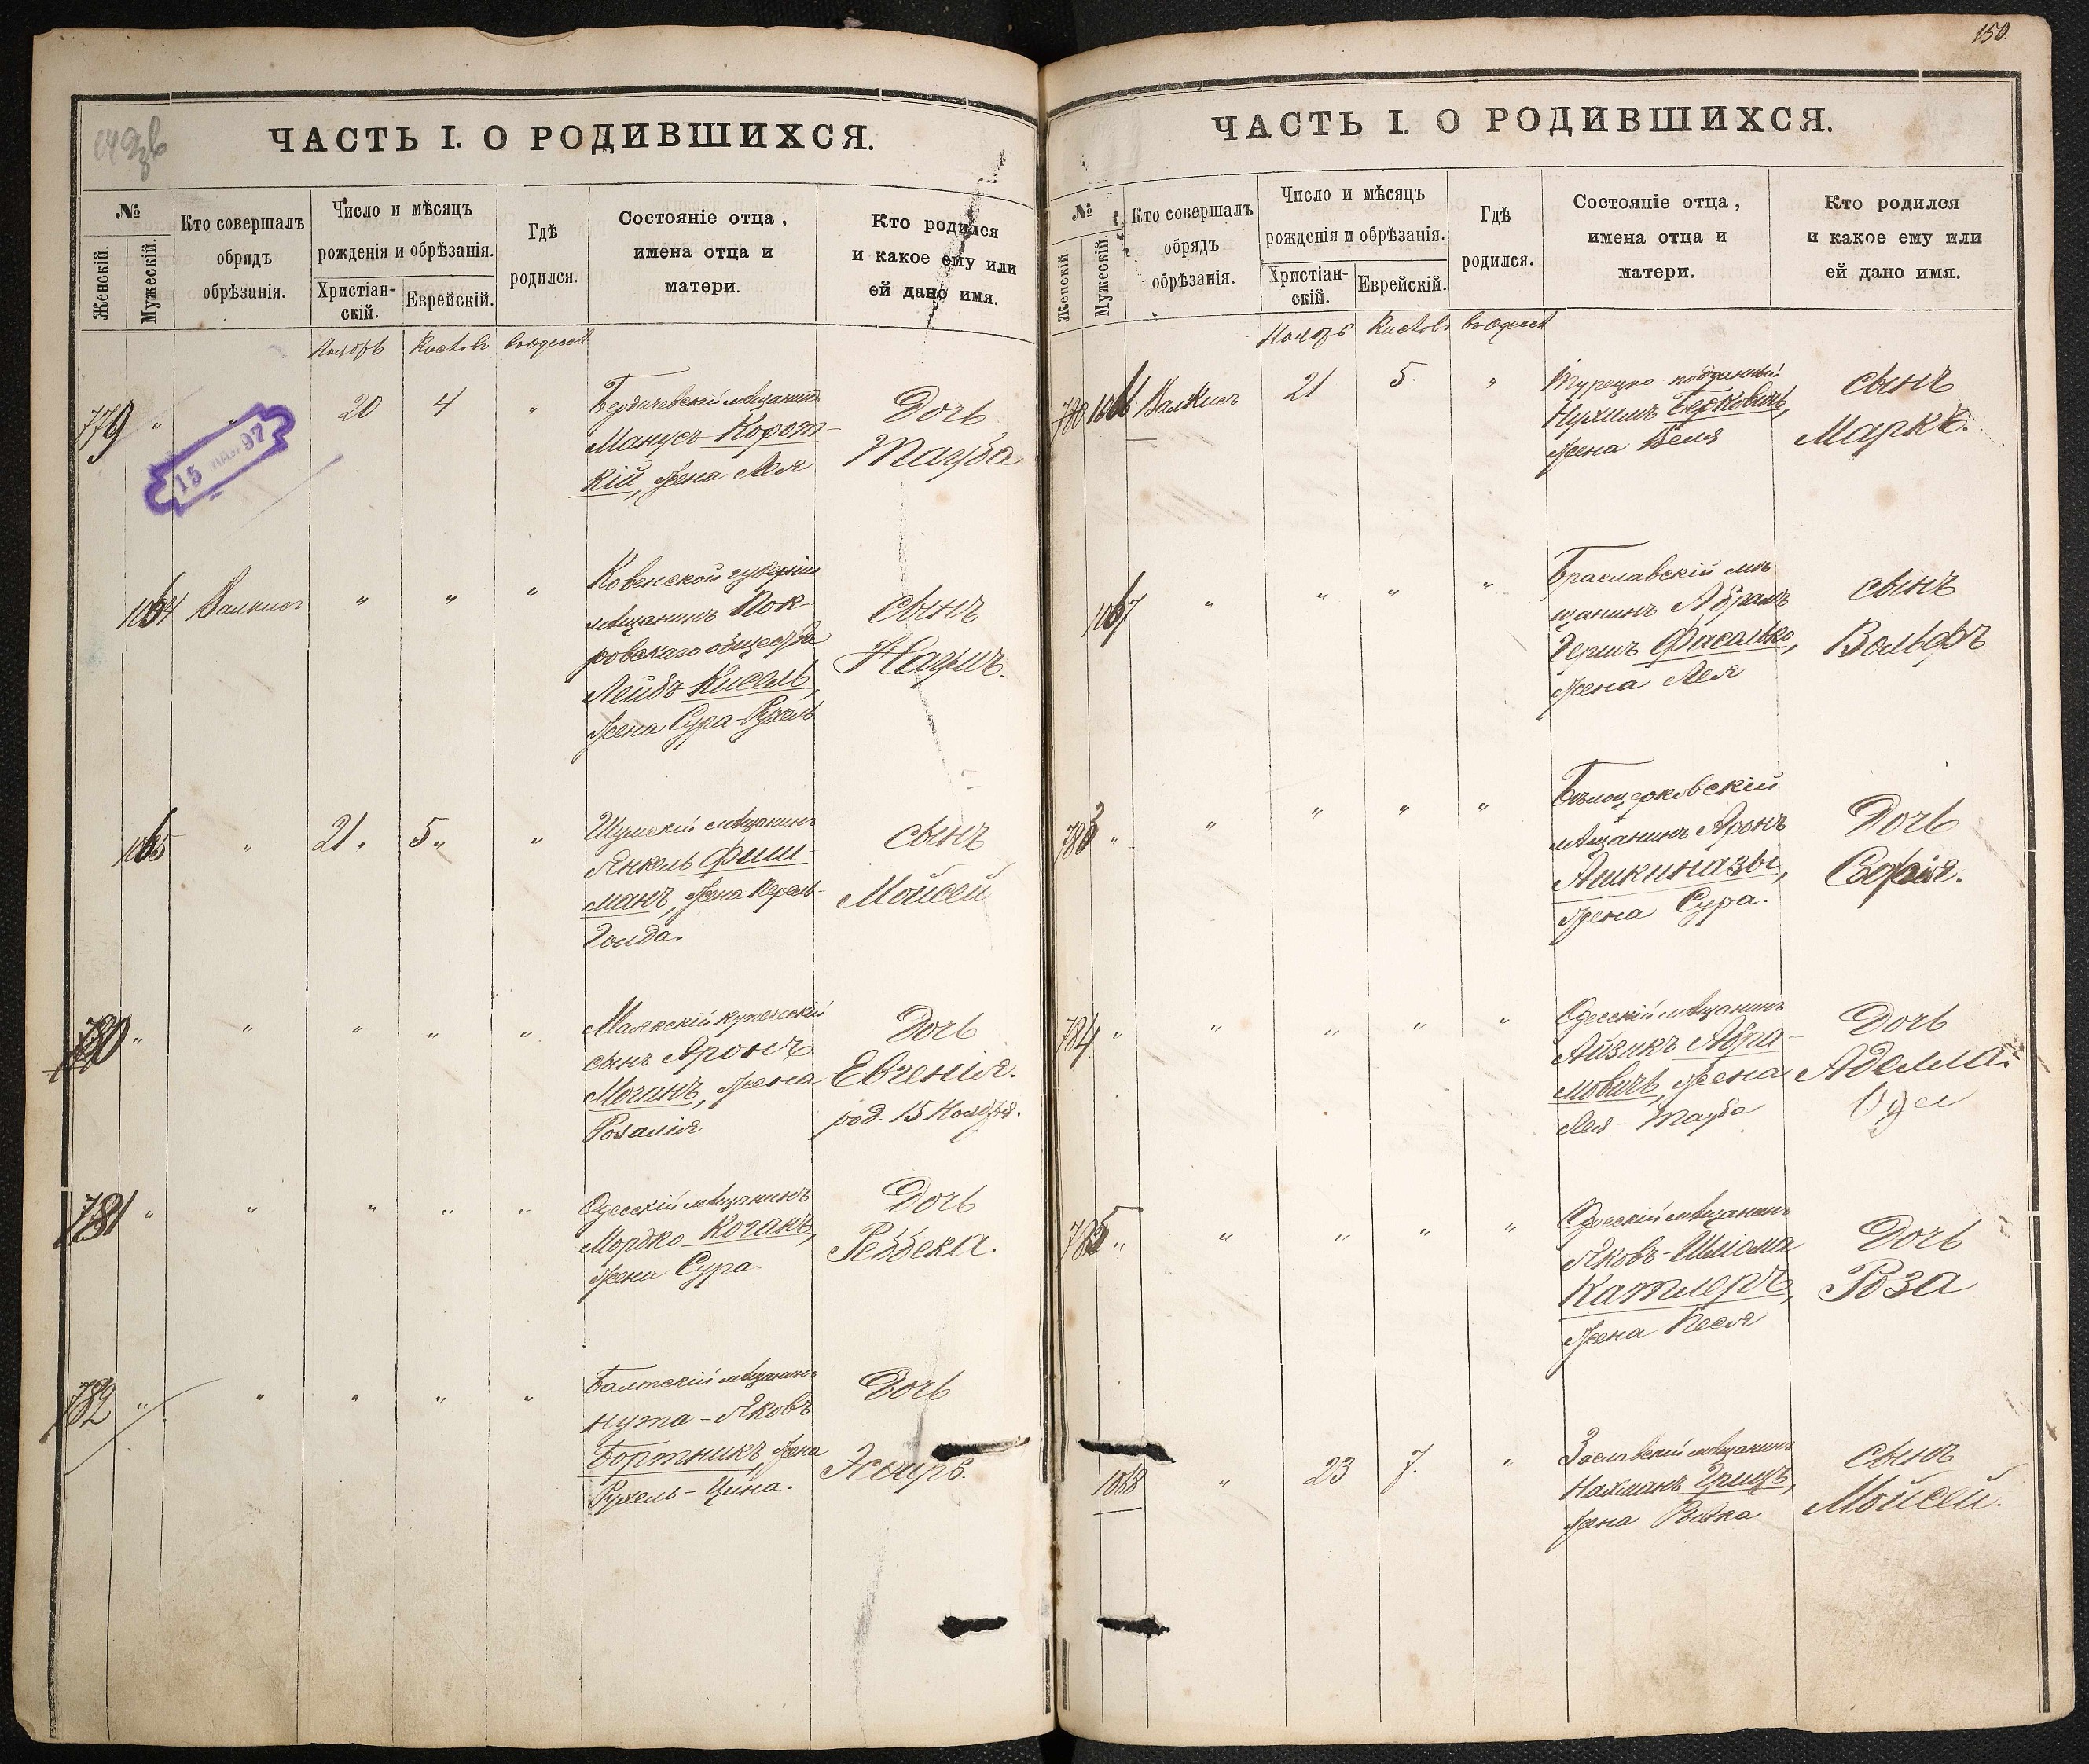 149 об
ЧАСТЬ I. О РОДИВШИХСЯ.
№
Женскій.
Мужескій.
Кто совершалъ
обрядъ
обрѣзанія.
Число и мѣсяцъ
рожденія и обрѣзанія.
Христіан-
скій.
Еврейскій.
Гдѣ
родился.
Состояніе отца,
имена отца и
матери.
Кто родился
и какое ему или
ей дано имя.
Ноябрь Кислевъ въ Одессѣ
779 " " 20 4 "
Бердичевскій мѣщанинъ
Манусъ Корот-
кій, жена Лея
Дочь
Тауба
15 МАЯ 97
1064 Валкисъ " " "
Ковенской губерніи
мѣщанинъ Пок-
ровскаго общества
Лейбъ Кисель,
жена Сура-Рухель
сынъ
1065 " 21 " 5 " "
Шумскій мѣщанинъ
Янкель Фиш-
манъ, жена Перель-
Голда.
сынъ
Мойсей
780 " " " " "
Маякскій купеческій
сынъ Аронъ
Моганъ, жена
Розалія
Дочь
Евгенія.
род. 15 Ноября.
781 " " " " "
Одесскій мѣщанинъ
Мордко Коганъ,
жена Сура.
Дочь
Реввека.
782 " " " " "
Балтскій мѣщанинъ
Нута-Яковъ
Бортникъ, жена
Рухель-Цина.
Дочь
Эсѳирь.
150.
ЧАСТЬ I. О РОДИВШИХСЯ.
№
Женскій.
Мужескій.
Кто совершалъ
обрядъ
обрѣзанія.
Число и мѣсяцъ
рожденія и обрѣзанія.
Христіан-
скій.
Еврейскій.
Гдѣ
родился.
Состояніе отца,
имена отца и
матери.
Кто родился
и какое ему или
ей дано имя.
Ноябрь Кислевъ въ Одессѣ
1066 Валкисъ 21 5. "
Турецко-подданный
Нухимъ Берковичъ,
жена Бейла
сынъ
Маркъ.
1067 " " " "
Браславскій мѣ-
щанинъ Абрамъ
Гершъ Фасолько,
жена Лея
сынъ
Вольфъ
783 " " " " "
Бѣлоцерковскій
мѣщанинъ Аронъ
Ашкиназы,
жена Сура.
Дочь
Софія.
784 " " " " "
Одесскій мѣщанинъ
Айзикъ Абра-
мовичъ, жена
Лея-Тауба
Дочь
Аделла.
785 " " " " "
Одесскій мѣщанинъ
Яковъ-Шліома
Катлеръ,
жена Песя
Дочь
Роза
1068 " 23 7. "
Заславскій мѣщанинъ
Нахманъ Грицъ,
жена Ривка
сынъ
Мойсей.